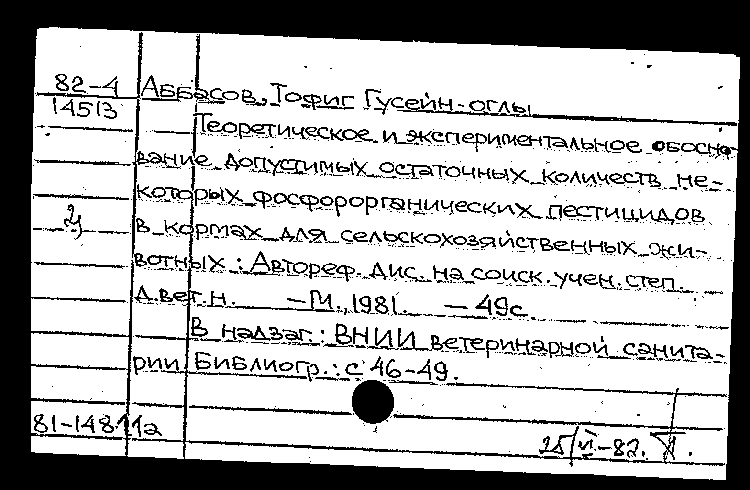 82-4 Аббасов, Тофиг Гусейн-оглы
14513
Теоретическое и экспериментальное обосно
вание допустимых остаточных количеств не-
которых фосфорорганических пестицидов
в кормах для сельскохозяйственных жи-
вотных : Автореф. дис. на соиск. учен. степ.
д.вет.н. — М., 1981. — 49с.
В надзаг.: ВНИИ ветеринарной санита-
рии. Библиогр.: с 46-49.
81-14811а
25/VI-82.